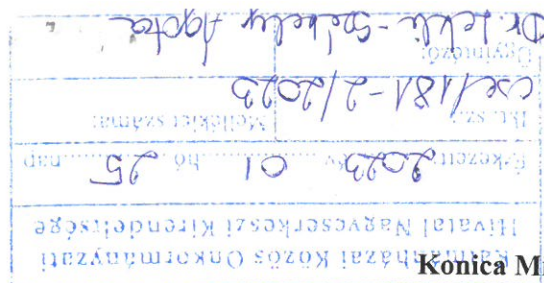 Kálmánházai Közös Önkormányzati
Hivatal Nagycserkeszi Kirendeltsége
Érkezett: 2023 év 01 hó 25 nap
Ikt. sz.: cse/181-2/2023 Melléklet száma:
Ügyintéző: Dr. Lekli-Székely Ágota
Konica